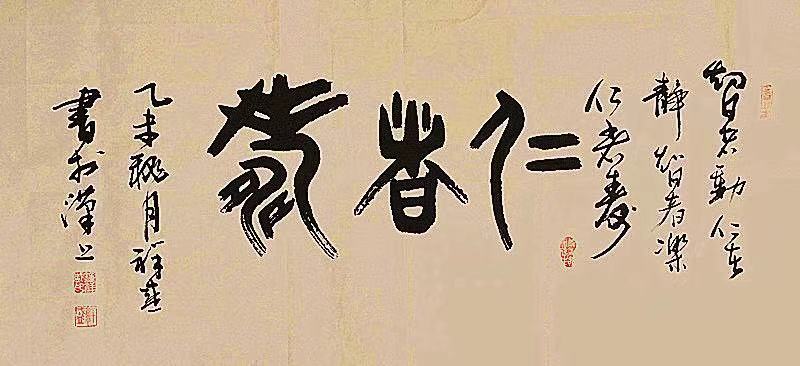 智者動仁者
靜智者樂
仁者壽
仁者壽
乙未桃月祥燕
書於漢上